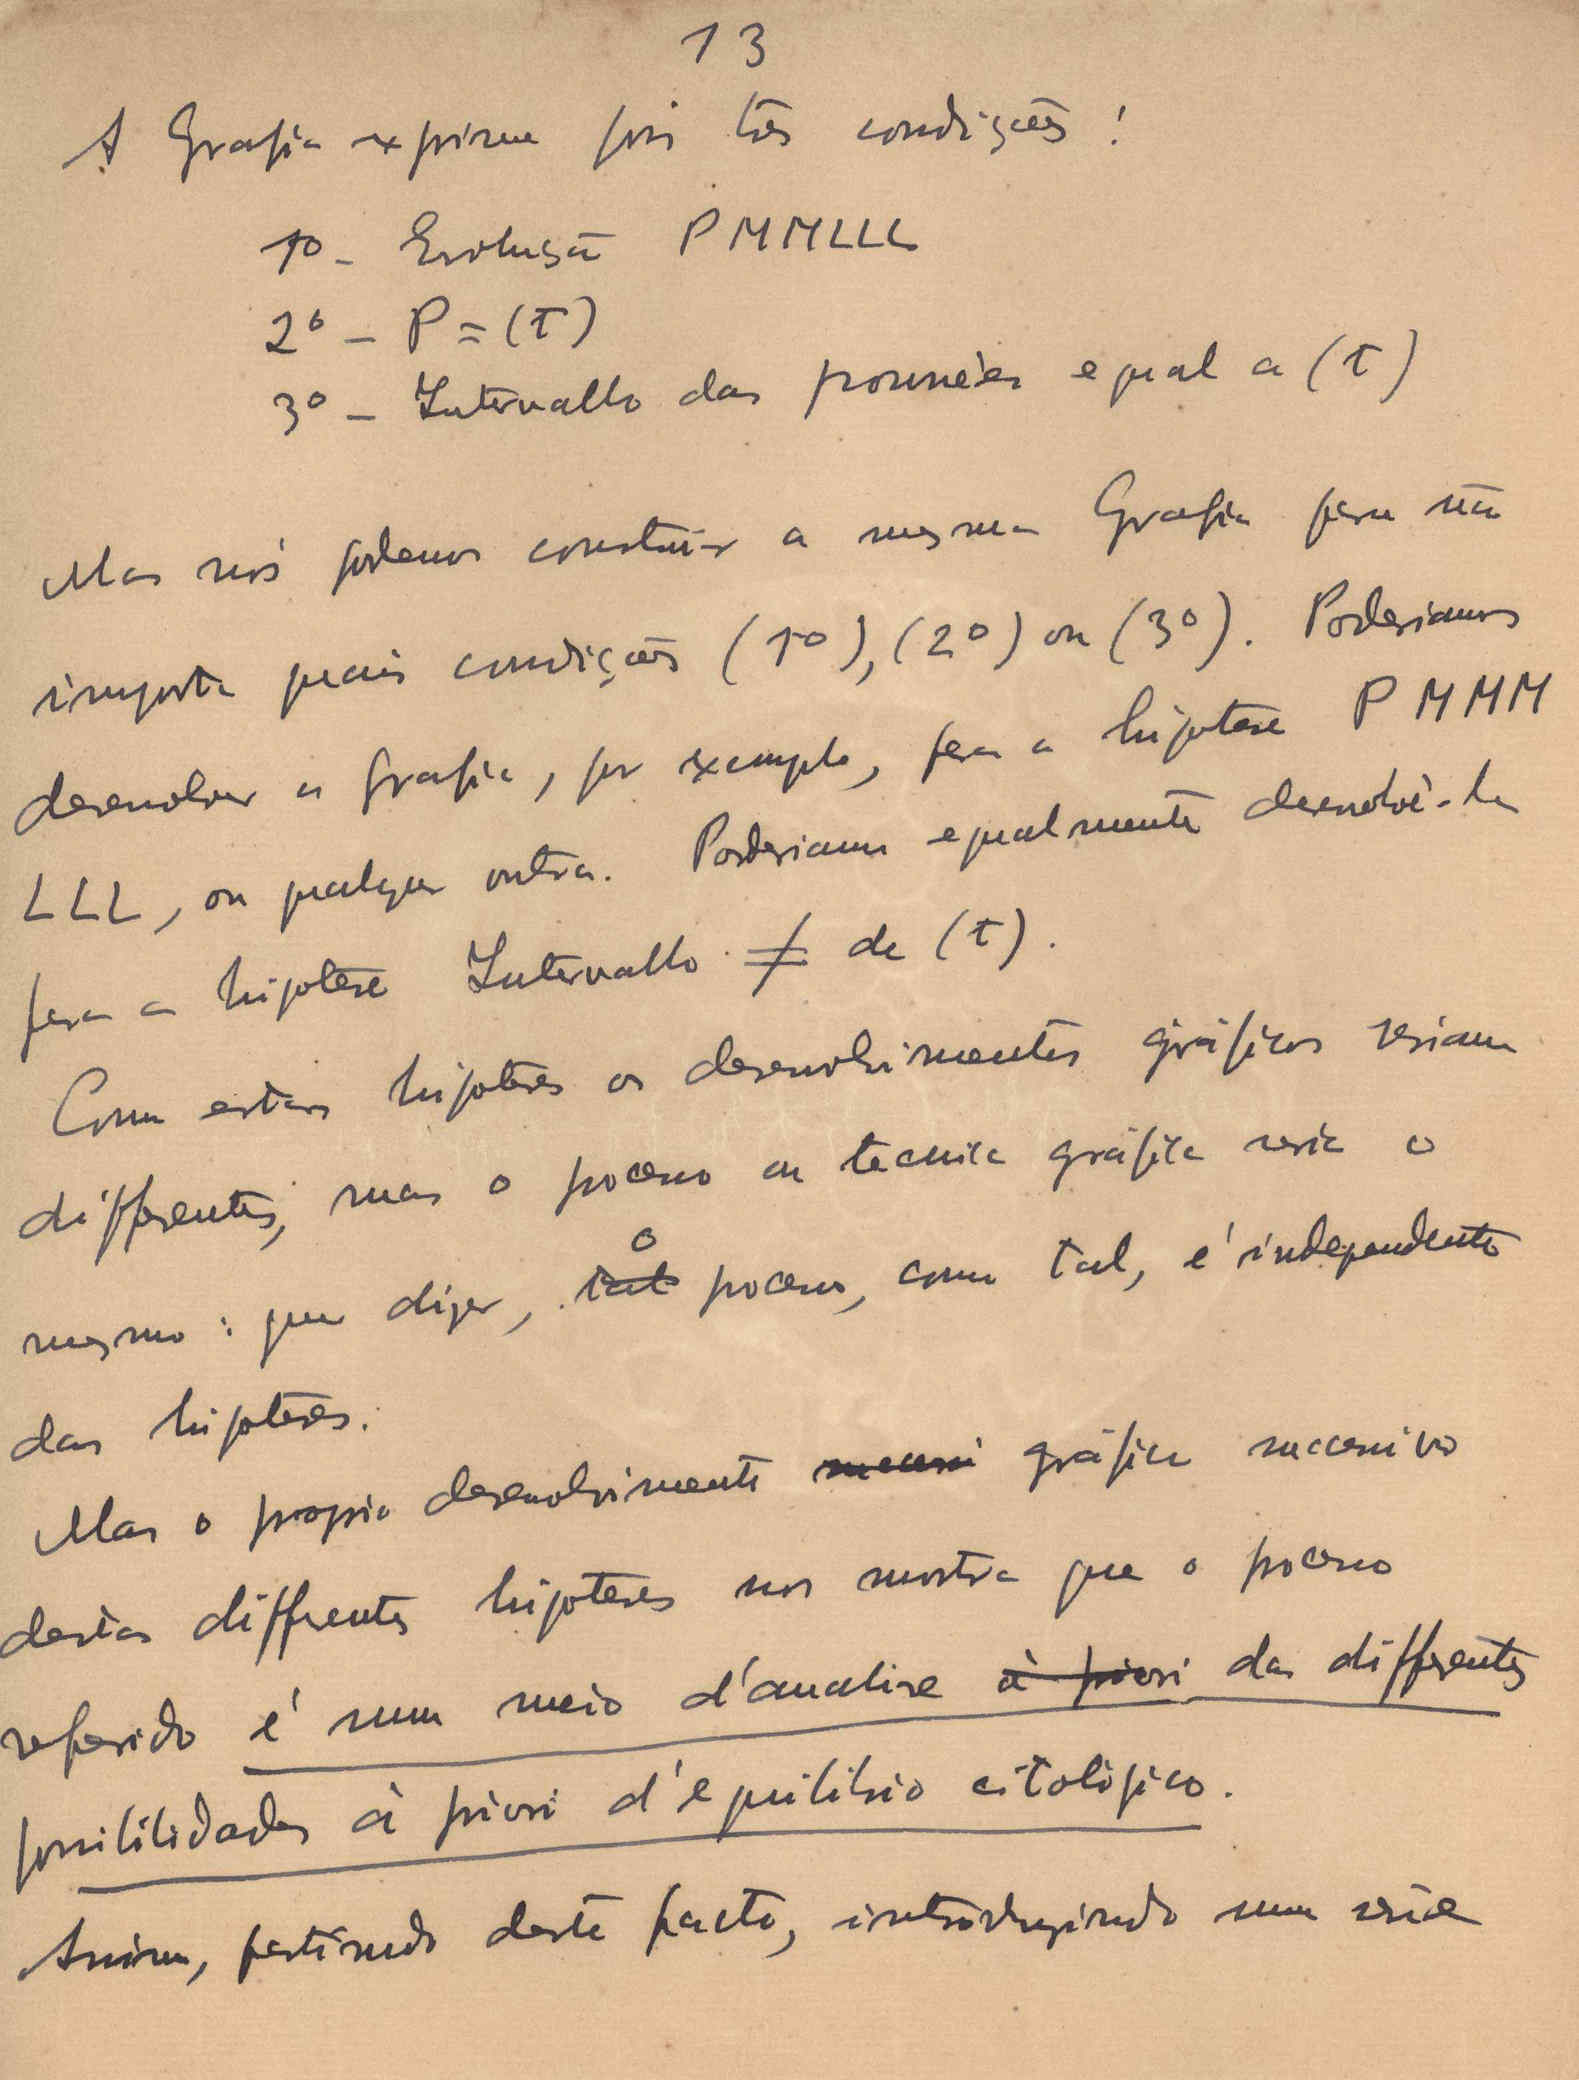 13
A Grafia exprime pois tres condições:
1º - Evolução PMMLLL
2º - P = (τ)
3º - Intervallo das equal a (τ)
Mas nós podemos construir a mesma Grafia para não
importa quais condições (1º), (2º) ou (3º). Poderiamos
desenvolver a grafia, por exemplo, para a hipotese PMMM
LLL, ou qualquer outra. Poderiamos equalmente desenvolvê-la
para a hipotese Intervallo ≠ de (τ).
Com estas hipoteses os desenvolvimentos gráficos seriam
differentes, mas o processo ou tecnica gráfica seria o
mesmo: quer dizer, o processo, como tal, é independente
das hipoteses.
Mas o proprio desenvolvimento gráfico successivo
destas differentes hipoteses nos mostra que o processo
referido é num meio d'analise à priori das differentes
possibilidades à priori d'equilibrio citológico.
Assim, partindo deste facto, introduzindo uma série